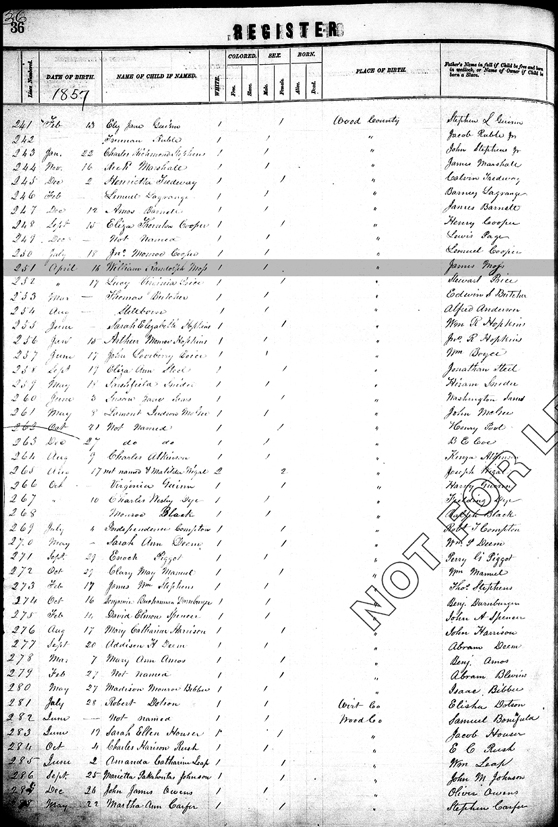 36
36
REGISTER
Line Numbered. DATE OF BIRTH. NAME OF CHILD IF NAMED. WHITE. COLORED. Free. Slave. SEX. Male. Female. BORN. Alive. Dead. PLACE OF BIRTH. Father's Name in full if Child be free and born in wedlock, or Name of Owner if Child be born a Slave.
1857
241 Feb 13 Ely Jane Guinn 1 1 Wood County Stephen L Guinn
242 Furman Ruble 1 1 " Jacob Ruble Jr
243 Jan. 22 Charles Stephens 1 1 " John Stephens Jr
244 Nov. 16 Marshall 1 1 " James Marshall
245 Dec 2 Henrietta Tredway 1 1 " Calvin Tredway
246 Feb — Lemuel Lagrange 1 1 " Barney Lagrange
247 Dec 12 Amos Barnett 1 1 " James Barnett
248 Sept 15 Eliza Thornton Cooper 1 1 " Henry Cooper
249 Dec — Not Named 1 1 " Lewis Page
250 July 18 Jno. Monroe Cooper 1 1 " Lemuel Cooper
251 April 16 William Randolph Moss 1 1 " James Moss
252 " 17 Lucy Virginia Price 1 1 " Stewart Price
253 Mar — Thomas Butcher 1 1 " Edwin S Butcher
254 Aug — Stillborn " Alfred Anderson
255 June — Sarah Elizabeth Hopkins 1 1 " Wm R Hopkins
256 Jan 15 Arthur Monroe Hopkins 1 1 " Jno. R Hopkins
257 June 17 John 1 1 " Wm Boyce
258 Sept 17 Eliza Ann Steel 1 1 " Jonathan Steel
259 May 18 Snider 1 1 " Hiram Snider
260 June 3 Susan Jane Sams 1 1 " Washington Sams
261 May 8 McGee 1 1 " John McGee
262 Oct 21 Not Named 1 1 " Henry
263 Dec 27 do do 1 1 " B C Coe
264 Aug 9 Charles Atkinson 1 1 "
265 Aug 17 not named & Matilda 2 2 " Joseph
266 Oct — Virginia Guinn 1 1 " Guinn
267 " 10 Charles Wesley Dye 1 1 " Fielding Dye
268 Monroe Black 1 1 " Black
269 July 4 Independence Compton 1 1 " Robt F Compton
270 May — Sarah Ann Deem 1 1 " Wm P Deem
271 Sept. 29 Enoch Piggot 1 1 " Perry G Piggot
272 Oct 29 Clary May Manuel 1 1 " Wm Manuel
273 Feb 17 James Wm Stephens 1 1 " Thos. Stephens
274 Oct 16 Benjamin Buchannan Darnburger 1 1 " Benj. Darnburger
275 Feb 11 David Elmore Spencer 1 1 " John A Spencer
276 Aug 17 Mary Catharine Harrison 1 1 " John Harrison
277 Sept 20 Addison H Deem 1 1 " Abram Deem
278 Mar 7 Mary Ann Amos 1 1 " Benj. Amos
279 Feb 27 Not named 1 1 " Abram Blevins
280 May 27 Madison Monroe Bibbee 1 1 " Isaac Bibbee
281 July 28 Robert Dotson 1 1 Wirt Co Elisha Dotson
282 June — Not named 1 1 Wood Co Samuel Bonifield
283 June 19 Sarah Ellen Houser 1 1 " Jacob Houser
284 Oct 4 Charles Harison Rush 1 1 " E C Rush
285 June 2 Amanda Catharine Leap 1 1 " Wm Leap
286 Sept. 25 Marietta Pokahontas Johnson 1 1 " John M Johnson
287 Dec 26 John James Owens 1 1 " Oliver Owens
288 May 22 Martha Ann Carfer 1 1 " Stephen Carfer
NOT FOR LE